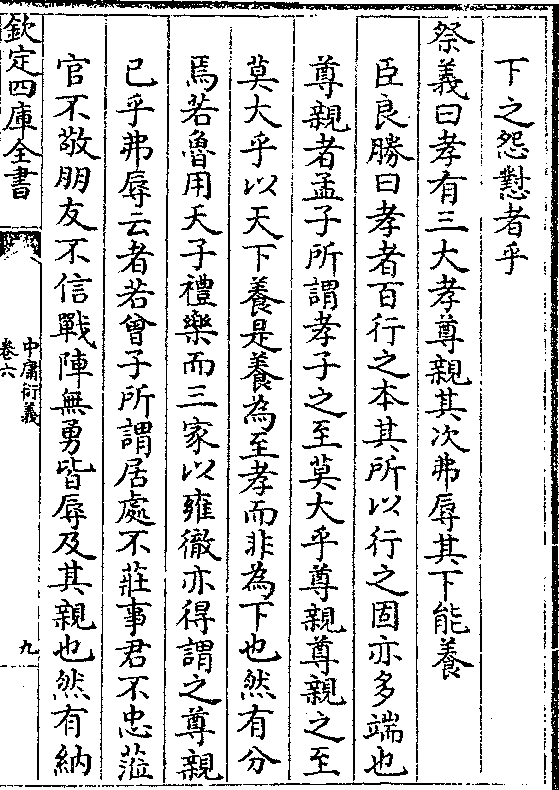 下之怨懟者乎
祭義曰孝有三大孝尊親其次弗辱其下能養
臣良勝曰孝者百行之本其所以行之固亦多端也
尊親者孟子所謂孝子之至莫大乎尊親尊親之至
莫大乎以天下養是養為至孝而非為下也然有分
焉若魯用天子禮樂而三家以雍徹亦得謂之尊親
已乎弗辱云者若曾子所謂居處不莊事君不忠蒞
官不敬朋友不信戰陣無勇皆辱及其親也然有納
欽定四庫全書
中庸衍義
卷六
九